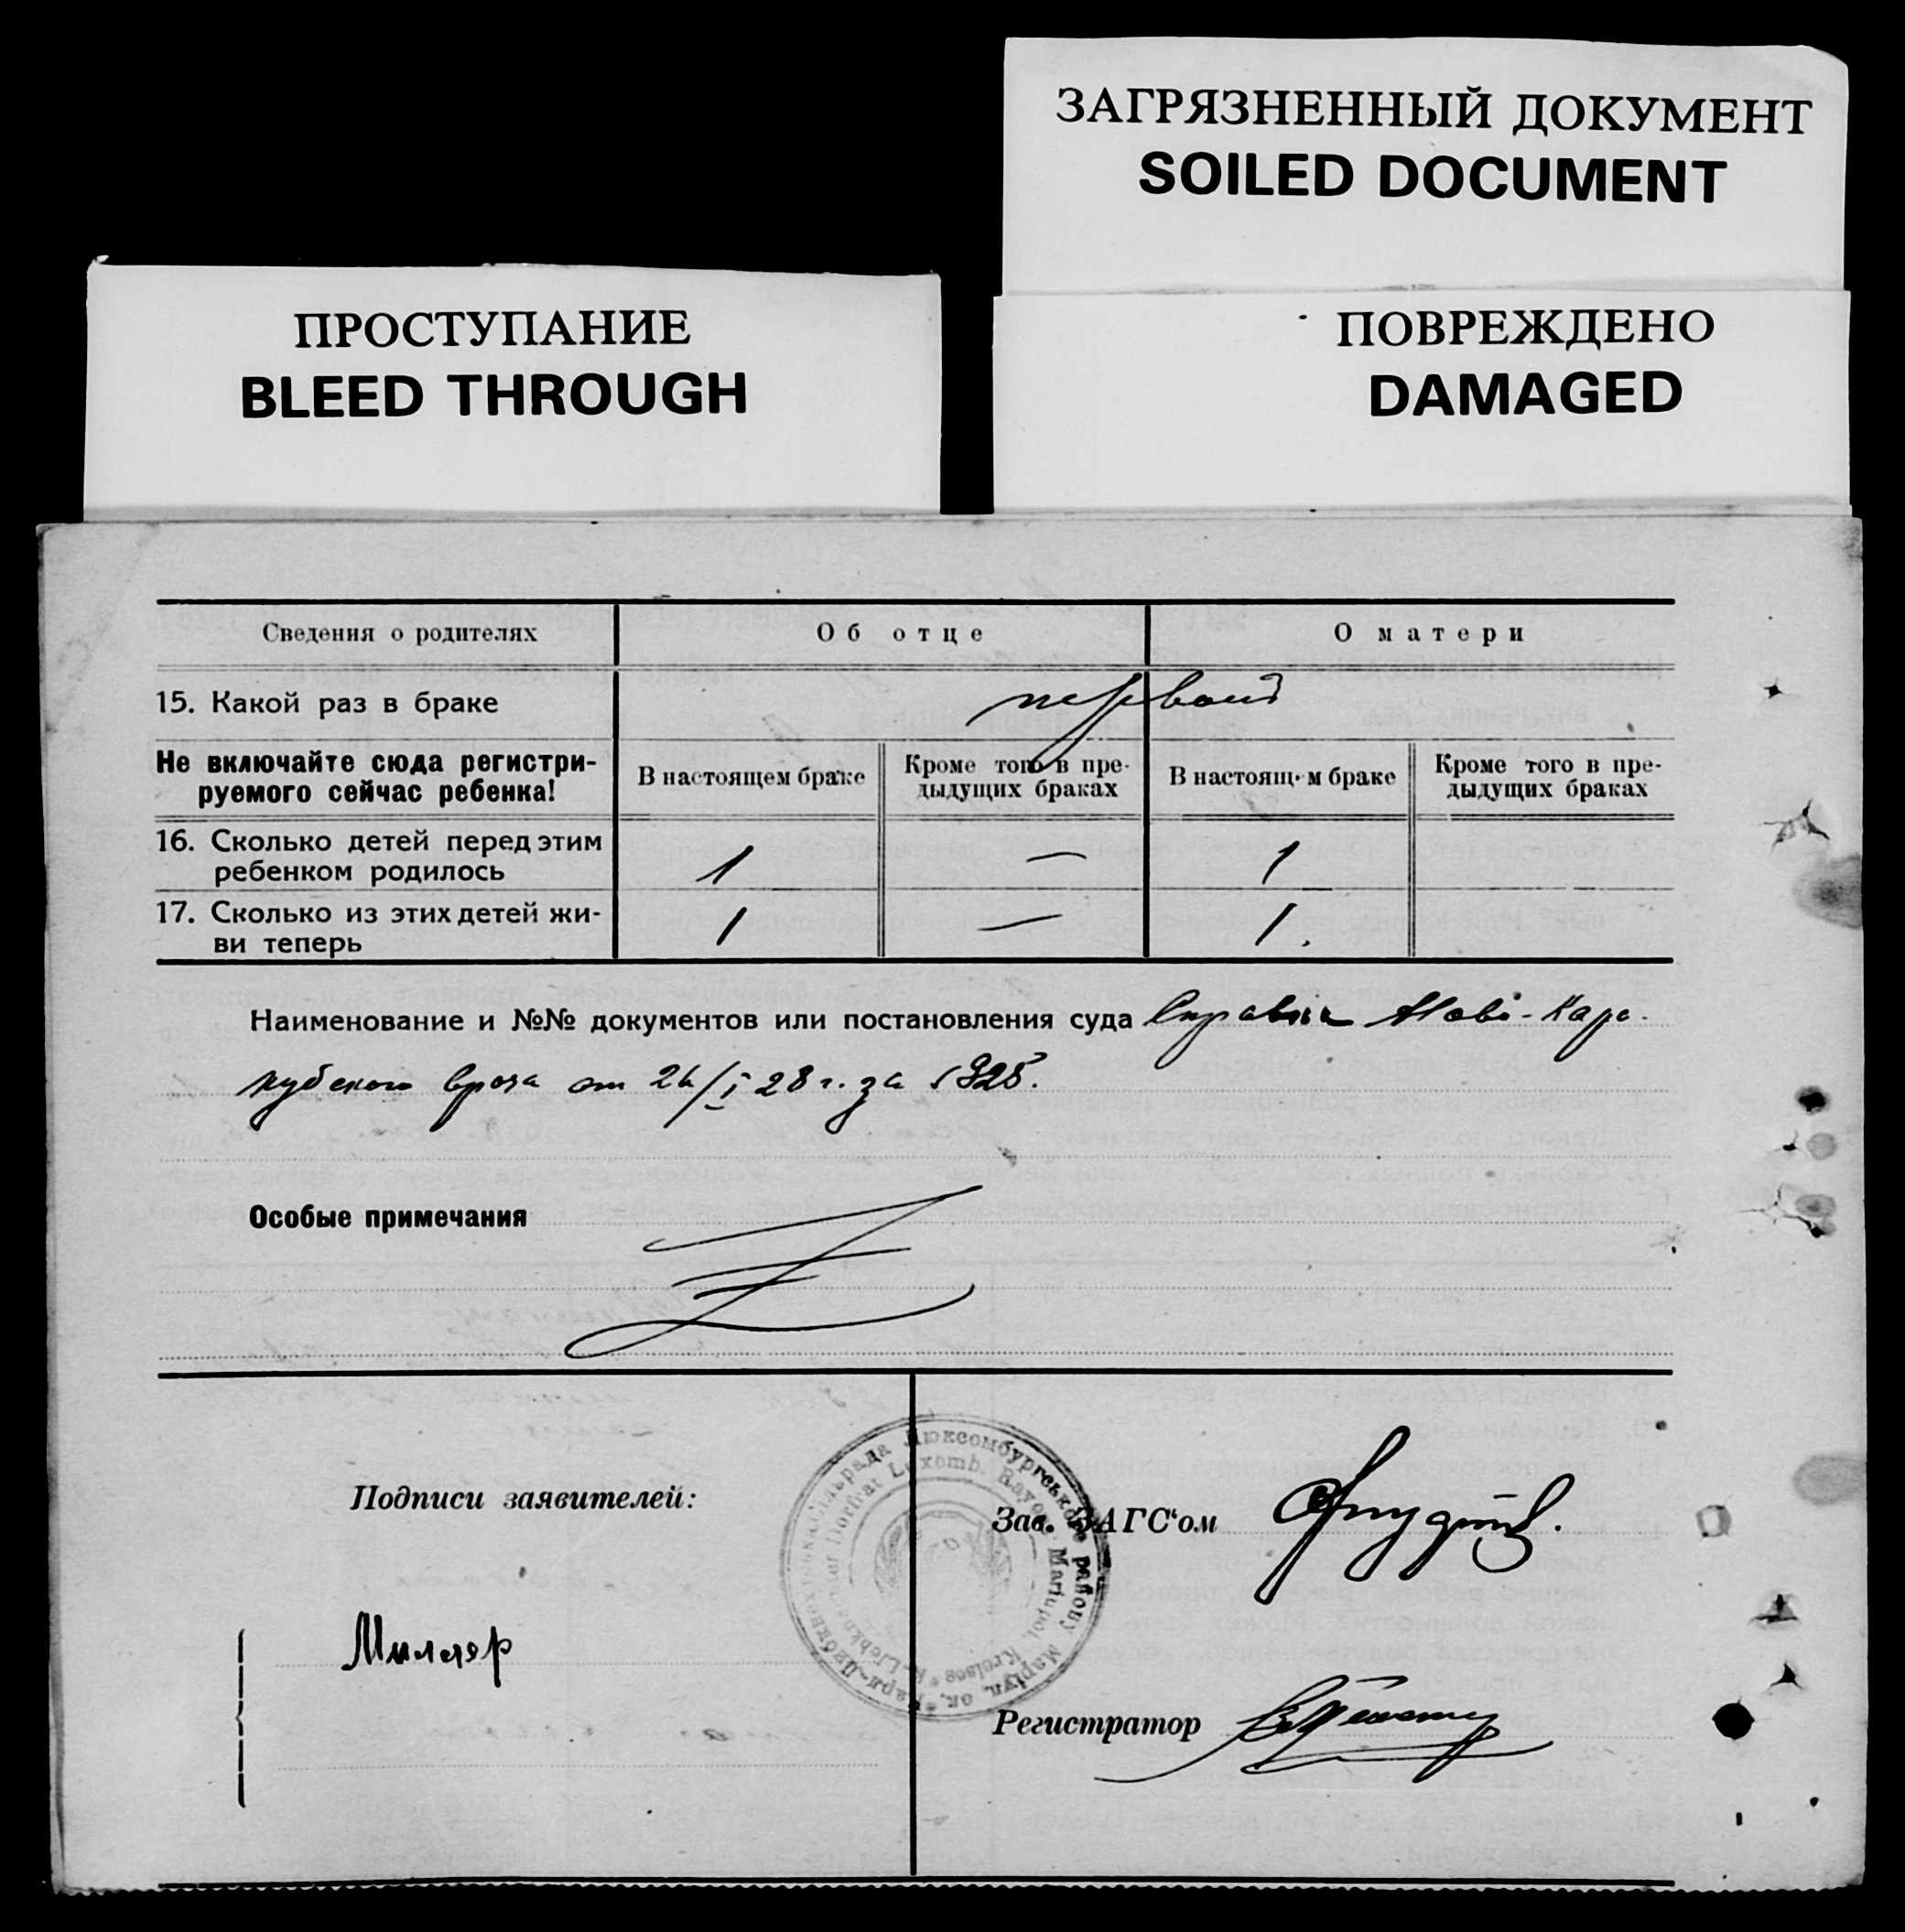 ЗАГРЯЗНЕННЫЙ ДОКУМЕНТ
SOILED DOCUMENT
ПРОСТУПАНИЕ
BLEED THROUGH
ПОВРЕЖДЕНО
DAMAGED
Сведения о родителях Об отце О матери
15. Какой раз в браке первый
Не включайте сюда регистри-
руемого сейчас ребенка!
В настоящем браке
Кроме того в пре-
дыдущих браках
В настоящем браке
Кроме того в пре-
дыдущих браках
16. Сколько детей перед этим
ребенком родилось 1 — 1
17. Сколько из этих детей жи-
ви теперь 1 — 1.
Наименование и №№ документов или постановления суда Справка Ново-Кара-
кубского врача от 26/I 28 г. за
Особые примечания
Подписи заявителей:
Миллер
Зав. ЗАГС‘ом
Регистратор
Люксомбургського району Маріуп. ок.
Dorfrat Luxemb. Rayon Mariupol. Kreises